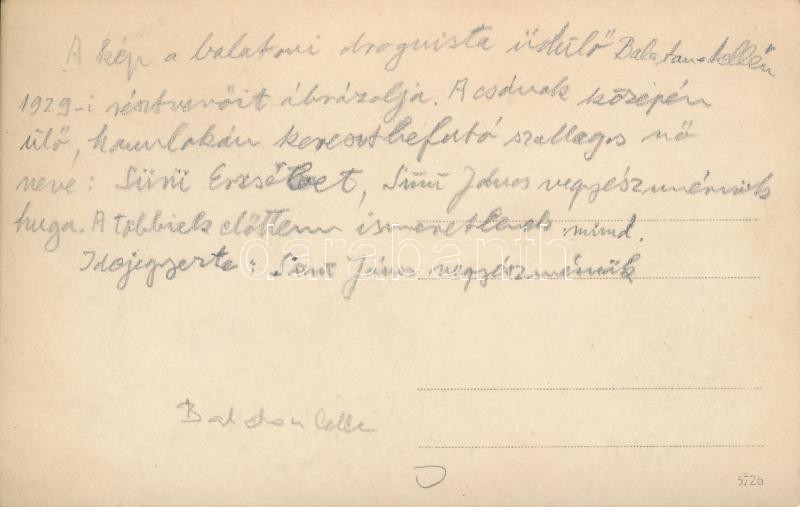 A kép a balatoni drogista üdülő Balatonlellén
1929-i résztvevőit ábrázolja. A csónak közepén
ülő, homlokán keresztbefutó szallagos nő
neve: Sürü Erzsébet, Sürü János vegyészmérnök
huga. A többiek előttem ismeretlenek mind.
Idejegyezte: Sürü János vegyészmérnök
darabanth
Balatonlelle
5726